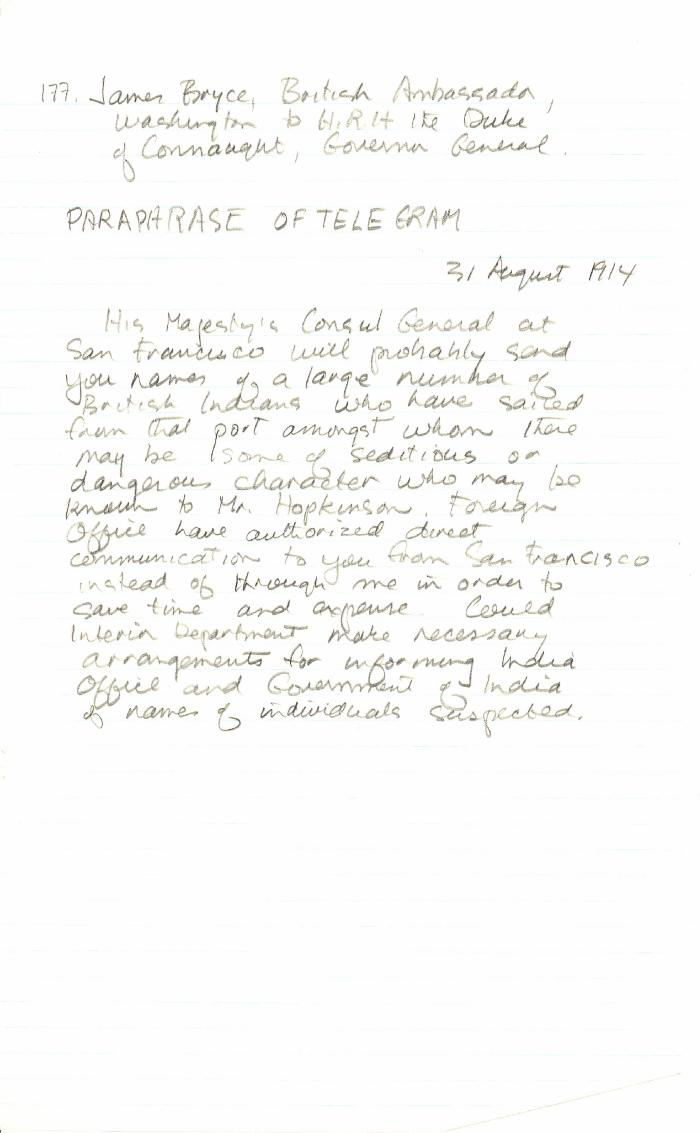 177. James Bryce, British Ambassador,
Washington to H.R.H the Duke
of Connaught, Governor General.
PARAPHRASE OF TELEGRAM
31 August 1914
His Majesty's Consul General at
San Francisco will probably send
you names of a large number of
British Indians who have sailed
from that port amongst whom there
may be some of seditious or
dangerous character who may be
known to Mr. Hopkinson. Foreign
Office have authorized direct
communication to you from San Francisco
instead of through me in order to
save time and expense. Could
Interior Department make necessary
arrangements for informing India
Office and Government of India
of names of individuals suspected.